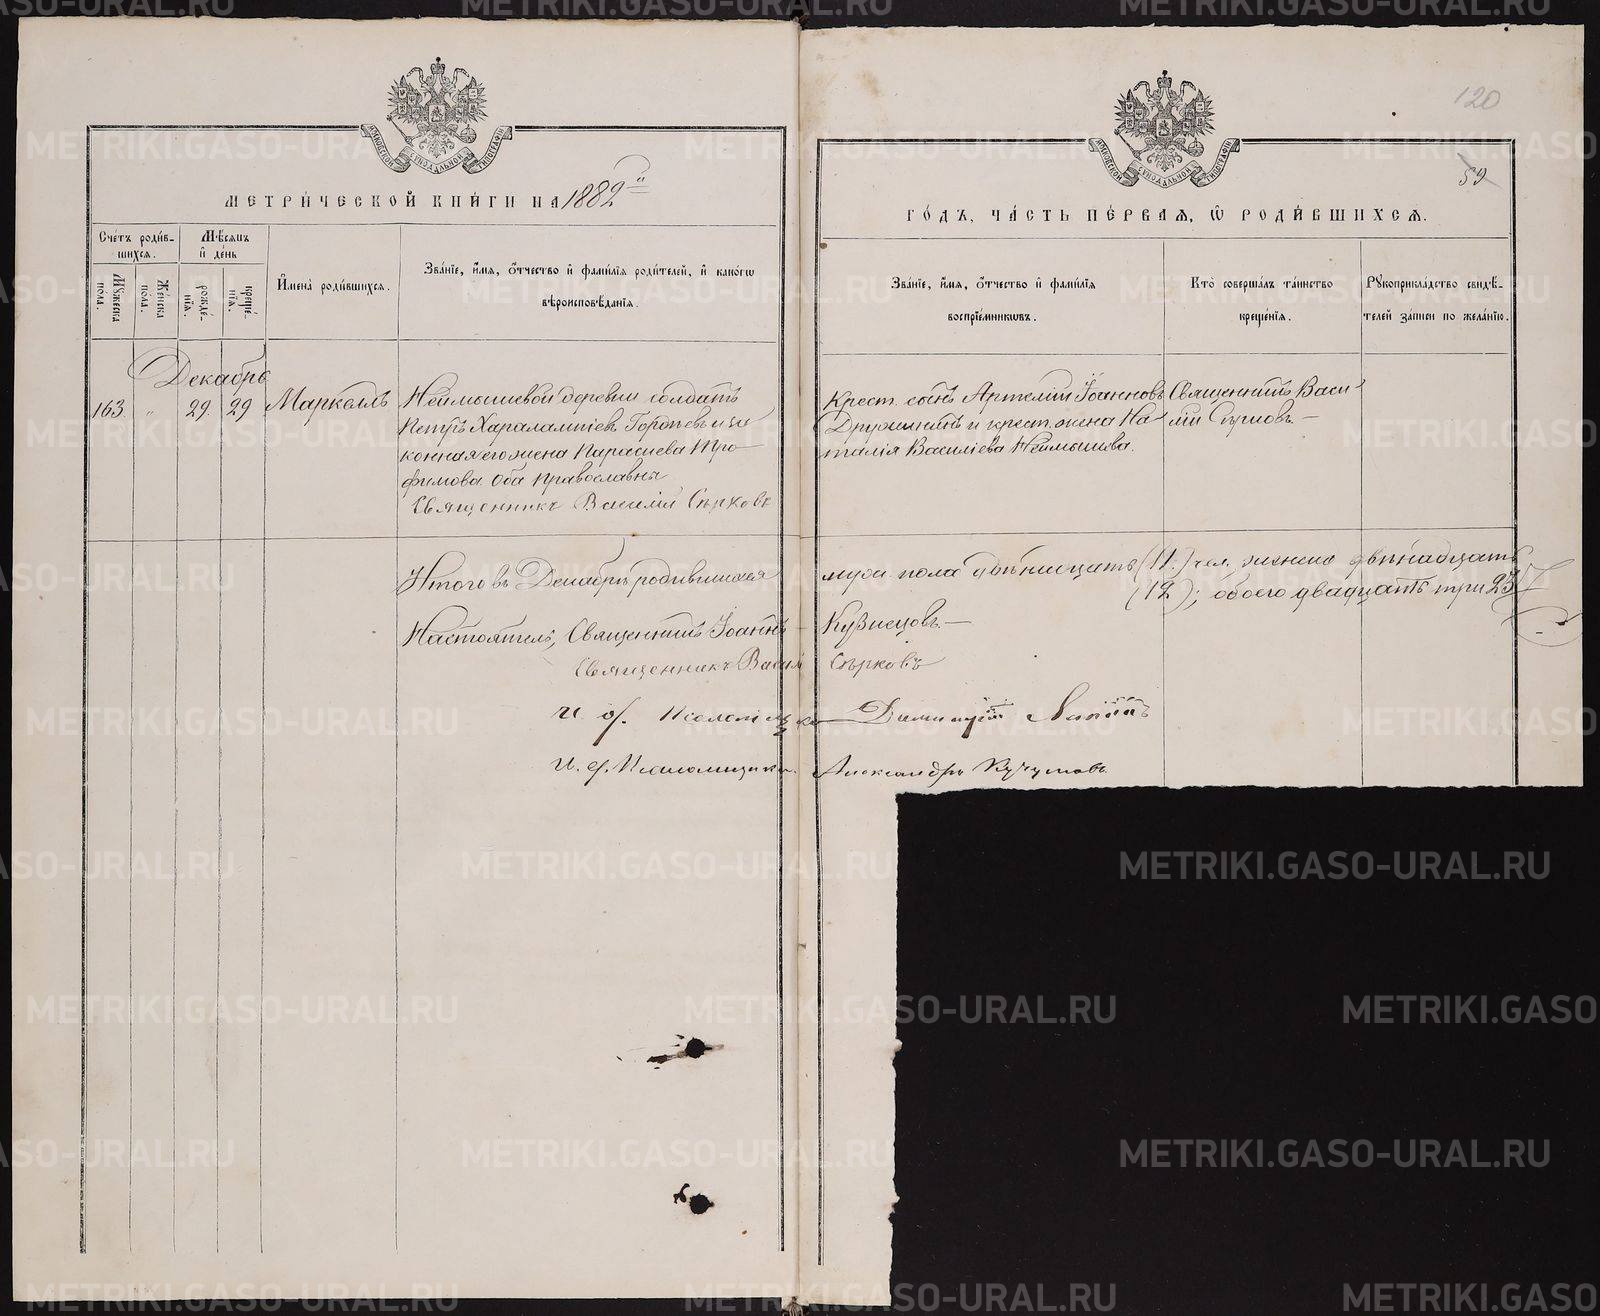 120
59
МЕТРИ́ЧЕСКОЙ КНИ́ГИ НА 1882 й
ГО́ДЪ, ЧА́СТЬ ПЕ́РВАЯ, Ѿ РОДИ́ВШИХСЯ.
Сче́тъ роди́в-
шихся.
Мꙋ́жеска по́ла.
Же́нска по́ла.
Мѣ́сяцъ и҆ де́нь
рожде́нїя.
креще́нїя.
И҆мена̀ роди́вшихся.
Зва́нїе, и҆́мя, ѻ҆́тчество и҆ фами́лїя роди́телей, и҆ како́гѡ
вѣроисповѣ́данїя.
Зва́нїе, и҆́мя, ѻ҆́тчество и҆ фами́лїя
воспрїе́мникѡвъ.
Кто̀ соверша́лъ та́инство
креще́нїя.
Рꙋкоприкла́дство свидѣ́-
телей за́писи по жела́нїю.
Декабрь
163. „ 29. 29 Маркеллъ
Неймышевой деревни солдатъ
Петръ Харалампіевъ Горо и за
конная его жена Параскева Тро
фимова оба православны
Священникъ Василій Сѣрковъ
Крест. сынъ Артемій Іоанновъ
Дружининъ и крест. жена На-
талія Василіева Неймышева.
Священникъ Васи
лій Сѣрковъ
Итого въ Декабрѣ родившихся муж. пола (11.) чел. женска двѣнадцать
(12); обоего двадцать три 23
Настоятель, Священникъ Іоаннъ Кузнецовъ.—
Священникъ Васил Сѣрковъ
И. об. Псаломщика Димитрій Лапинъ
И. об. Псаломщика. Александръ
METRIKI.GASO-URAL.RU